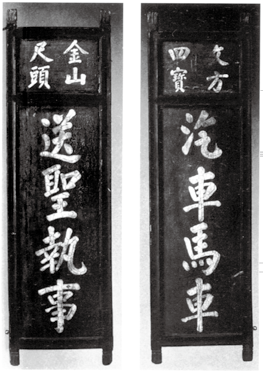 文方
四寶
汽車馬車
金山
尺頭
送聖執事